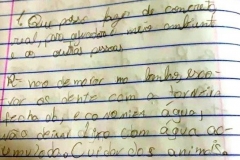 1. Que posso fazer de concreto
real, pra ajudar o meio ambiente
as outras pessoas
R- não demorar no banho, esco-
var os dente com a torneira
fechada, economizar água,
não deixar lixo com água ac-
umulada. Cuidar dos animais.